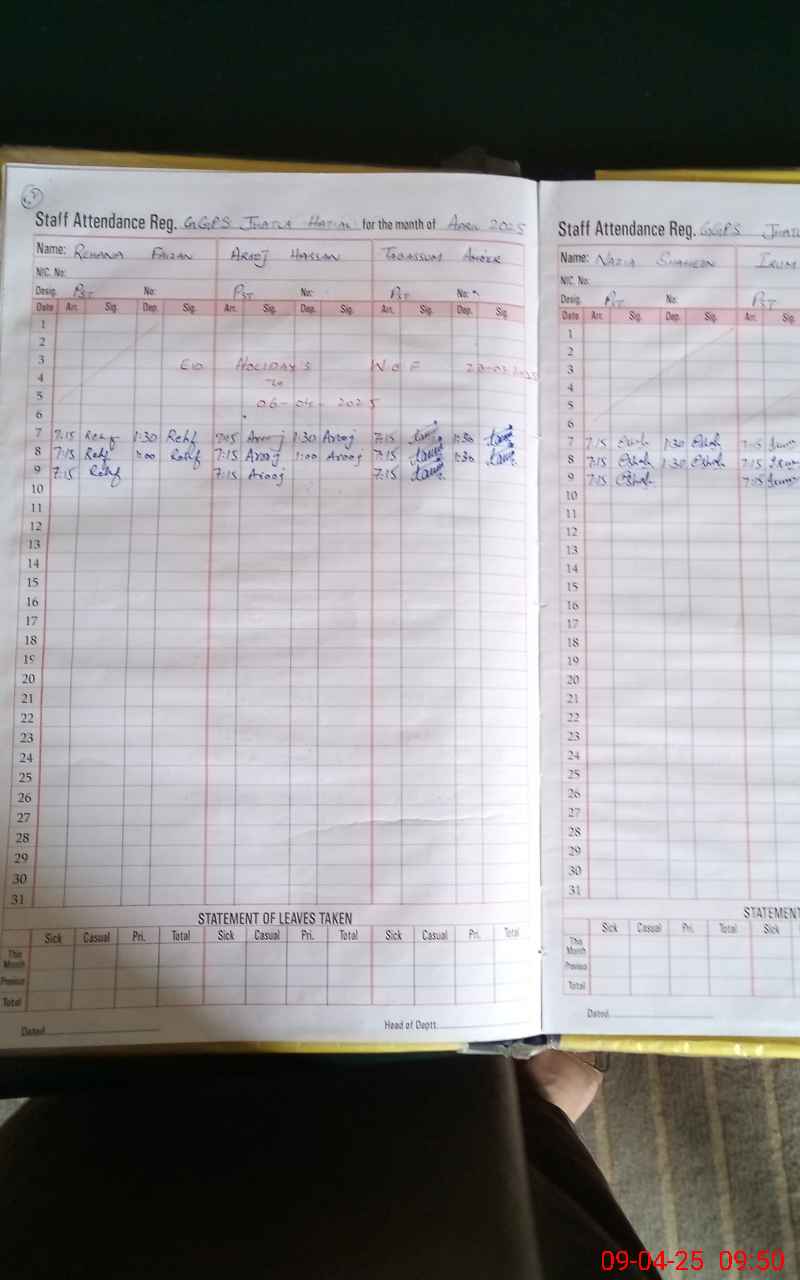 Staff Attendance Reg. GGPS JHATLA HATIAL for the month of APRIL 2025
Name: REHANA FAIZAN AROOJ HASSAN TABASSUM AMEER
NIC. No:
Desig. PST No: PST No: PST No:
Date Arr. Sig. Dep. Sig. Arr. Sig. Dep. Sig. Arr. Sig. Dep. Sig.
1
2
3 EID HOLIDAYS W.O.F
4 To
5 06-04-2025
6
7 7:15 1:30 Arooj 1:30 Arooj 7:15 1:30
8 7:15 1:00 7:15 Arooj 1:00 Arooj 7:15 1:30
9 7:15 7:15 Arooj 7:15
10
11
12
13
14
15
16
17
18
19
20
21
22
23
24
25
26
27
28
29
30
31
STATEMENT OF LEAVES TAKEN
Sick Casual Pri. Total Sick Casual Pri. Total Sick Casual Pri. Total
This Month
Previous
Total
Dated
Head of Deptt.
Staff Attendance Reg. GGPS
Name: NAZIA SHAHEEN IRUM
NIC. No:
Desig. PST No: PST
Date Arr. Sig. Dep. Sig. Arr. Sig.
1
2
3
4
5
6
7 7:15 1:30 7:15
8 7:15 1:30 7:15
9 7:15 7:15
10
11
12
13
14
15
16
17
18
19
20
21
22
23
24
25
26
27
28
29
30
31
STATEMENT
Sick Casual Pri. Total Sick
This Month
Previous
Total
Dated
09-04-25 09:50